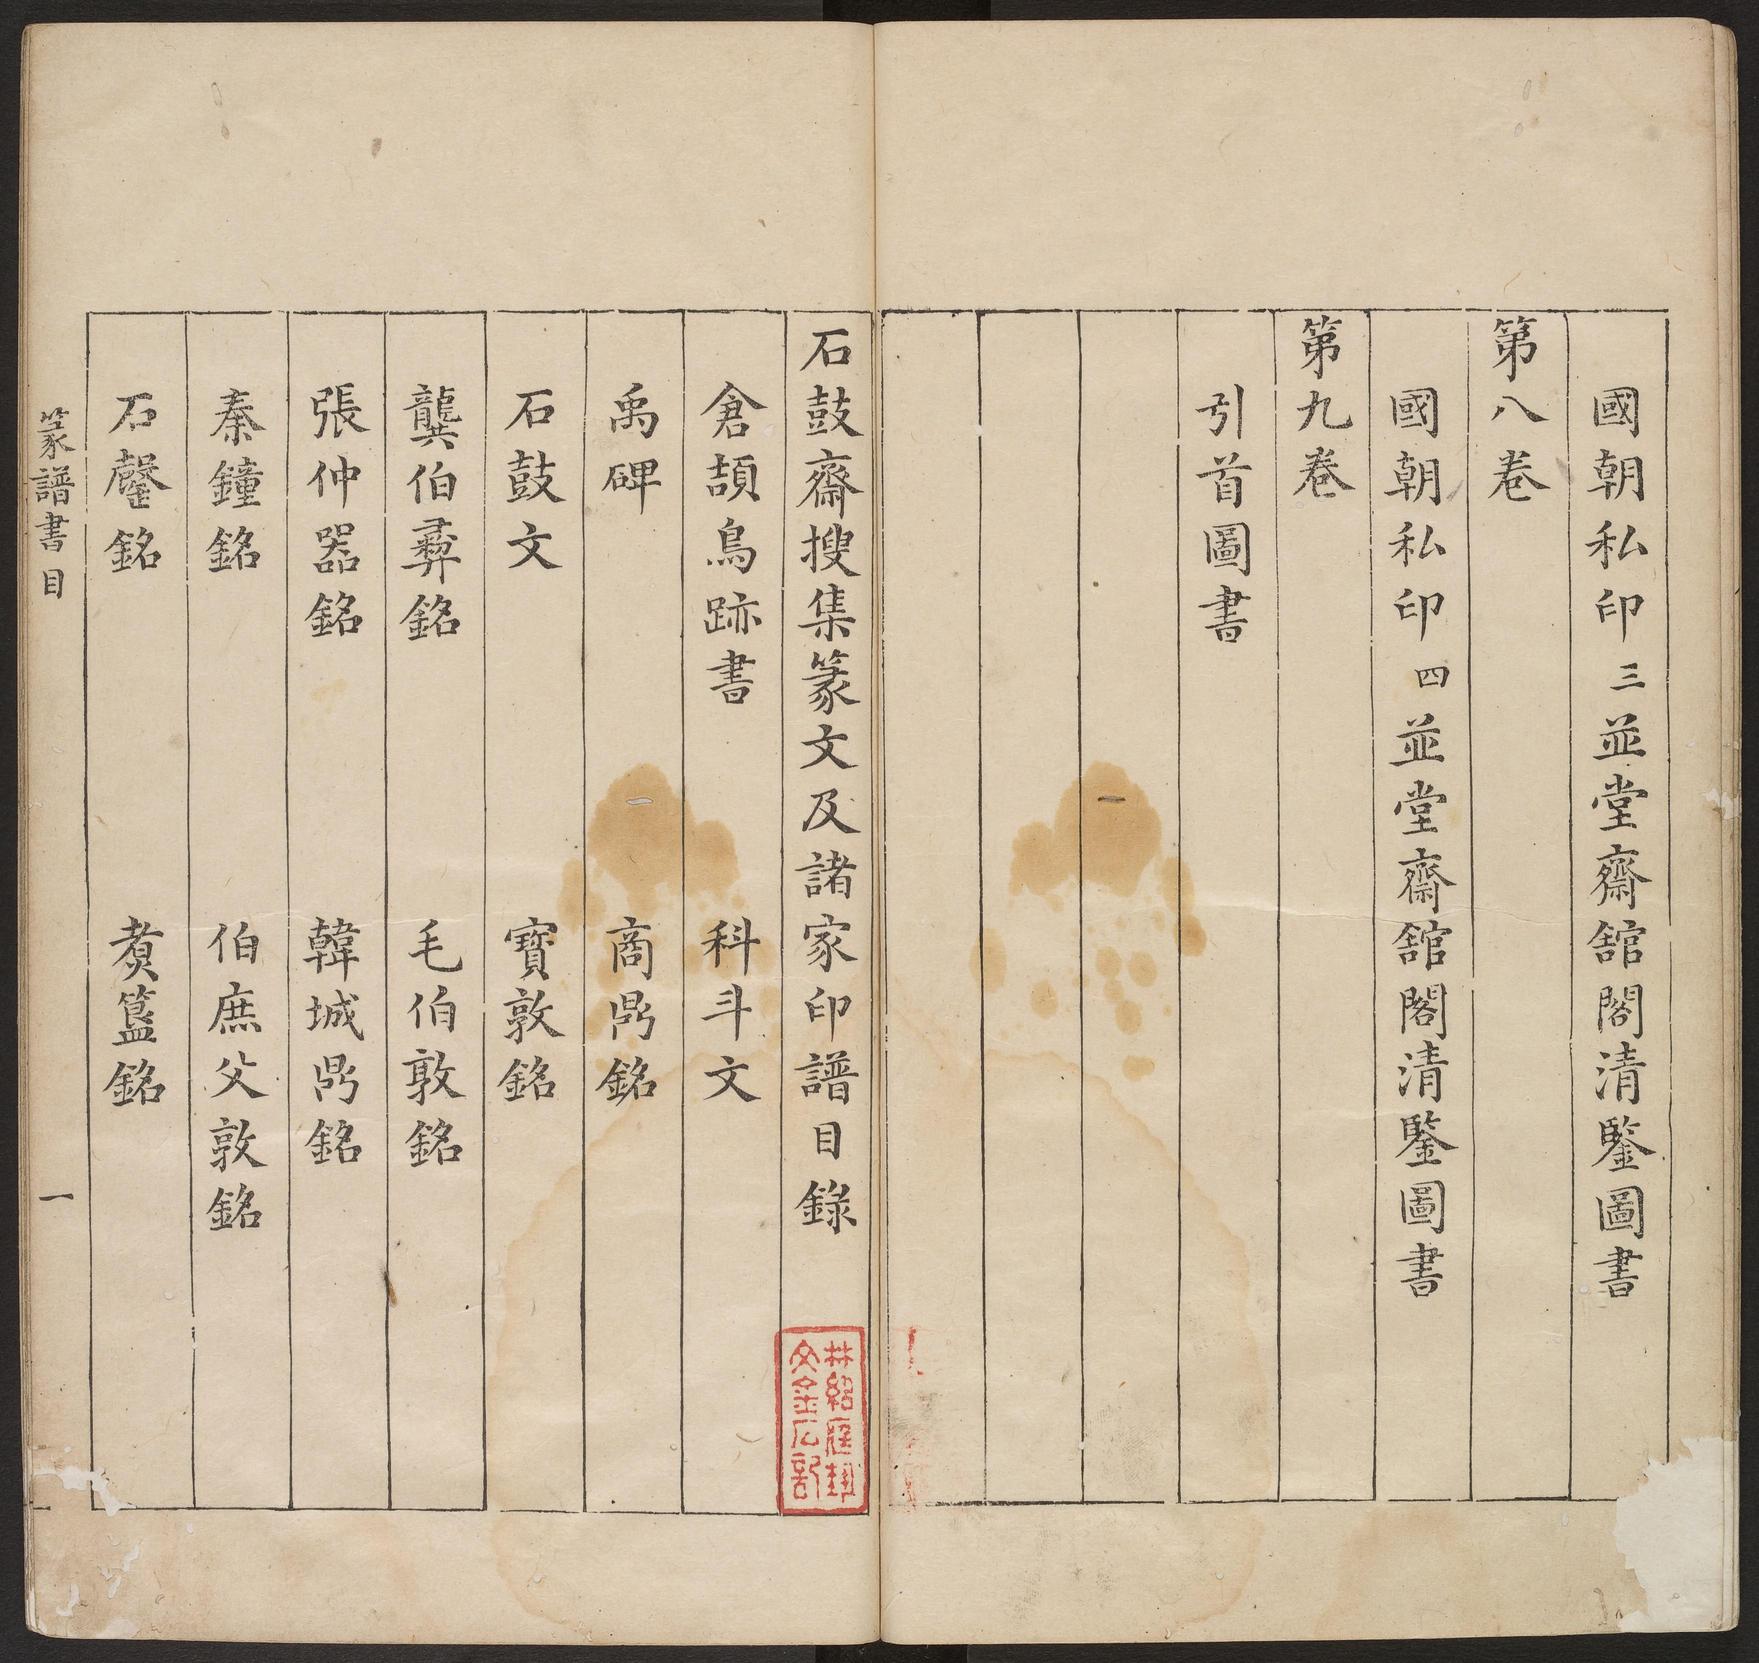 國朝私印三並堂齋舘閣清鑒圖書
第八卷
國朝私印四並堂齋舘閣清鑒圖書
第九卷
引首圖書
石鼓齋搜集篆文及諸家印譜目錄
倉頡鳥跡書 科斗文
禹碑 商鼎銘
石鼓文 寶敦銘
龔伯彞銘 毛伯敦銘
張仲器銘 韓城鼎銘
秦鐘銘 伯庶父敦銘
石磬銘 簋銘
篆譜書目 一